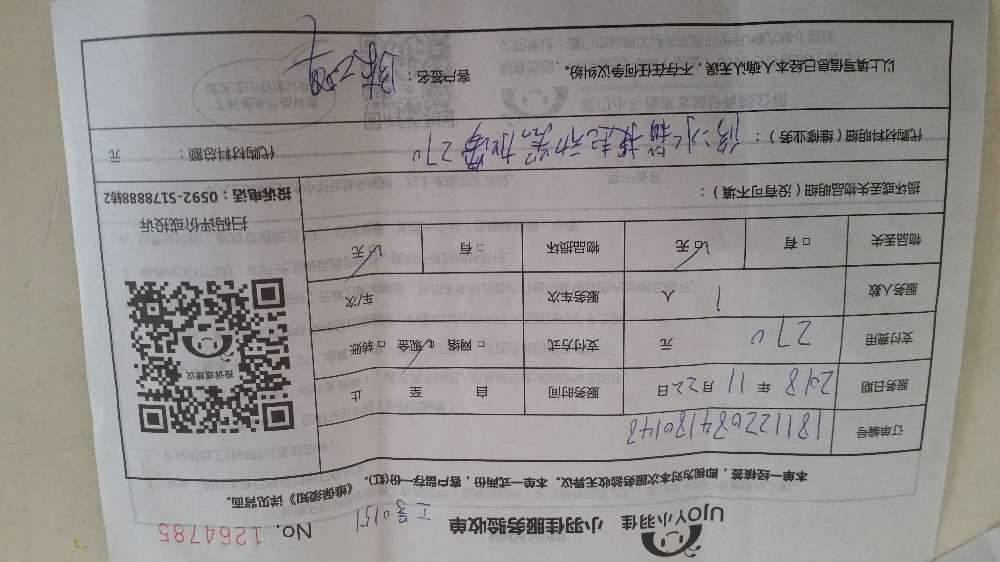 UJOY小羽佳 小羽佳服务验收单 工号0151 No. 1264785
本单一经接签，即视为对本次服务验收无异议。本单一式两份，客户留存一份(红)。《维保须知》详见背面。
订单编号 181122084180148
服务日期 2018 年 11 月 22 日 服务时间 自 至 止
支付费用 270 元 支付方式 □ 网络 □ 现金 □ 转账
服务人数 1 人 服务车次 车/次
物品丢失 □ 有 □ 无 物品损坏 □ 有 □ 无
投诉或建议
扫码评价或投诉
投诉电话：0592-5178888转2
损坏或丢失物品明细（没有可不填）：
代购材料明细（维修业务）： 270 代购材料总额： 元
以上填写信息已经本人确认无误，不存在任何争议纠纷。 客户签名：